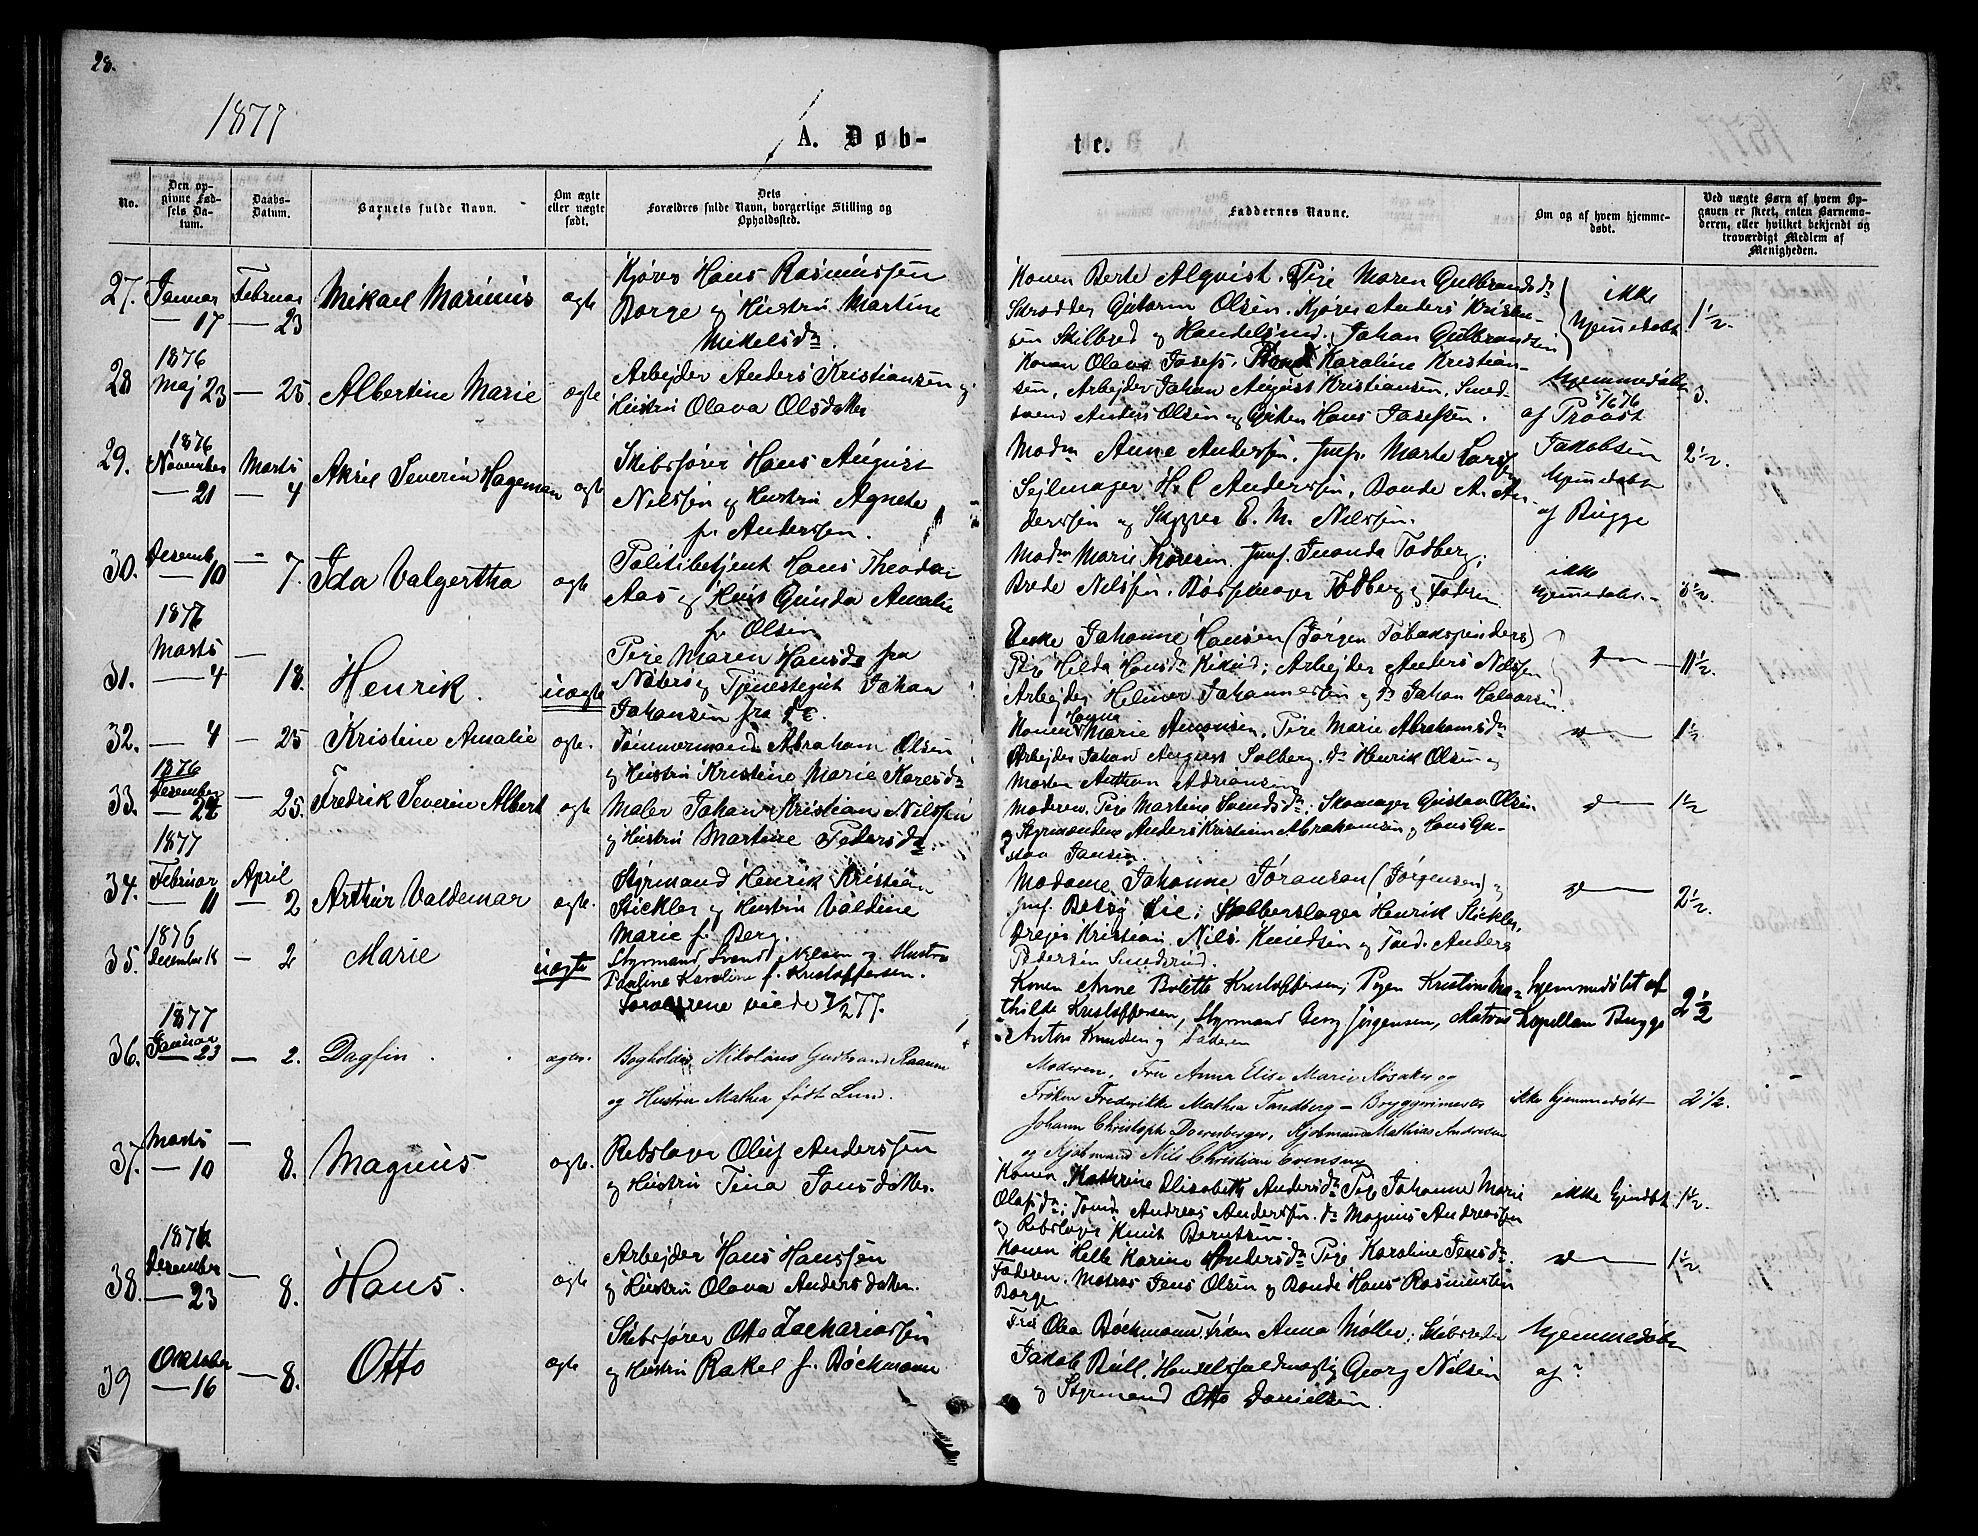 28.
1877
A. Døb-
te.
No.
Den op-
givne Fød-
sels Da-
tum.
Daabs-
Datum.
Barnets fulde Navn.
Om ægte
eller uægte
født.
Dets
Forældres fulde Navn, borgerlige Stilling og
Opholdssted.
Faddernes Navne.
Om og af hvem hjemme-
døbt.
Ved uægte Børn af hvem Op-
gaven er skeet, enten Barnemo-
deren, eller hvilket bekjendt og
troværdigt Medlem af
Menigheden.
27. Januar — 17 Februar — 23 Mikael Marinius ægte
Kjører Hans Rasmussen
Borge og Hustru Martine
Mikelsdr.
Konen Berte Alqvist. Pige Maren Gulbrandsdr
Skrædder Guttorm Olsen. Kjører Anders Kristen-
sen Skilbred og Handelsmd. Johan Gulbrandsen
ikke
hjemmedøbt
1½.
28 1876 Maj 23 — 25. Albertine Marie ægte
Arbejder Anders Kristiansen og
Hustru Olava Olsdatter
Konen Olava Josefs. Karoline Kristian-
sen, Arbejder Johan August Kristiansen, Smed-
svend Anders Olsen og Hans Josefsen.
Hjemmedøbt
5/6 76
af Provst
Jakobsen
3.
29. 1876 November — 21 Marts — 4 Aksel Severin Hageman ægte
Skibsfører Hans August
Nilssen og Hustru Agnete
f. Anderssen.
Madm Anne Anderssen. Jmf. Marte Larssen
Sejlmager H. C Anderssen. Bonde A. An-
derssen og Skipper E. M. Nilssen.
Hjemmedøbt
af Bugge
2½.
30. Desemb — 10 — 7. Ida Valgertha ægte
Politibetjent Hans Theodor
Aas og Hust Gunda Amalie
f. Olsen
Madm Marie Thoresen. Jmf. Inanda Todberg.
Brede Nilssen. Bøssemager Todberg og Faderen
ikke
hjemmedøbt.
3½.
31. 1877 Marts — 4 — 18. Henrik. uægte
Pige Maren Hansdr fra
Nøterø og Tjenestegut Johan
Johansen fra do.
Enke Johanne Hansen (Jørgen Tobakspinders)
Pige Helda Hansdr Eknud; Arbejder Anders Nilssen
Arbejder Helmer Johannessen og do Johan Halvorsen.
do
1½.
32. — 4 — 25 Kristine Amalie ægte.
Tømmermand Abraham Olsen
og Hustru Kristine Marie Karesdr
Konen Hanna Marie Amonsen. Pige Marie Abrahamsdr
Arbejder Johan August Solberg. do Henrik Olsen og
Morten Anthon Adriansen
do
1½
33. 1876 Desember — 24 — 25. Fredrik Severin Albert ægte
Maler Johan Kristian Nilssen
og Hustru Martine Pedersdr.
Moderen. Pige Martine Svendsdr. Skomager Gustav Olsen.
og Styrmændene Anders Kristian Abrahamsen og Hans Gu-
stav Jansen.
do
1½
34. 1877 Februar — 11 April — 2 Arthur Valdemar ægte.
Styrmand Henrik Kristian
Stickler og Hustru Valdine
Marie f. Berg.
Madame Johanne Jøransen (Jørgensen) og
Jmf. Betsy Lie; Kobberslager Henrik Stickler,
Drejer Kristian. Nils Knudsen og Tmd. Anders
Pedersen Smedsrud.
do
2½.
35. 1876 December 18 — 2 Marie uægte
Styrmand Svend Nilsen og Hustru
Pauline Karoline f. Kristoffersen.
Forældrene viede 7/2 77.
Konen Anne Bolette Kristoffersen; Pigen Kristine Ma-
thilde Kristoffersen, Styrmand Georg Jørgensen, Matros
Anton Knudsen og Faderen
hjemmedøbt af
Kapellan Bugge
2½
36. 1877 Januar — 23 — 2. Dagfin. ægte.
Bogholder Nikolaus Gudbrand Raanm
og Hustru Mathea født Lund.
Moderen, Fru Anna Elise Marie Røsaker og
Frøken Frederikke Mathea Tandberg — Bryggerimester
Johann Christoph Doernberger, Kjøbmand Mathias Andresen
og Kjøbmand Nils Christian Evensen
ikke hjemmedøbt
2½.
37. Marts — 10 — 8. Magnus ægte.
Rebslager Oluf Anderssen
og Hustru Tina Jonsdatter.
Konen Kathrine Elisabeth Andersdr Pige Johanne Marie
Olafsdr; Tømd Andreas Anderssen. do Magnus Andreassen
og Rebslager Knut Berntsen.
ikke hjmdøbt.
1½.
38. 1876 Desember — 23 — 8. Hans. ægte
Arbejder Hans Hanssen
og Hustru Olava Andersdatter.
Konen Helle Karine Andersdr Pige Karoline Jensdr.
Faderen. Matros Jens Olsen og Bonde Hans Rasmussen
Borge
do
1½.
39 Oktober — 16 — 8. Otto ægte
Skibsfører Otto Zachariassen
og Hustru Rakel f. Bøckmann
Fru Olea Bøckmann. Frøken Anna Møller; Skibsreder
Jakob Bull. Handelsfuldmægtig Georg Nilsen
og Styrmand Otto Danielsen.
Hjemmedøbt
af ?